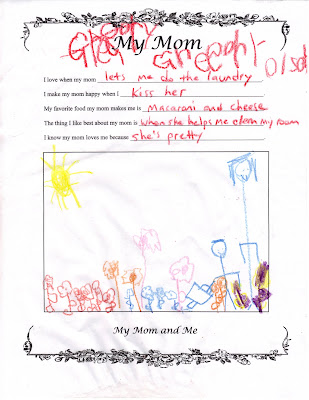 My Mom
I love when my mom lets me do the laundry
I make my mom happy when I Kiss her
My favorite food my mom makes me is Macaroni and cheese
The thing I like best about my mom is when she helps me clean my room
I know my mom loves me because she's pretty
My Mom and Me